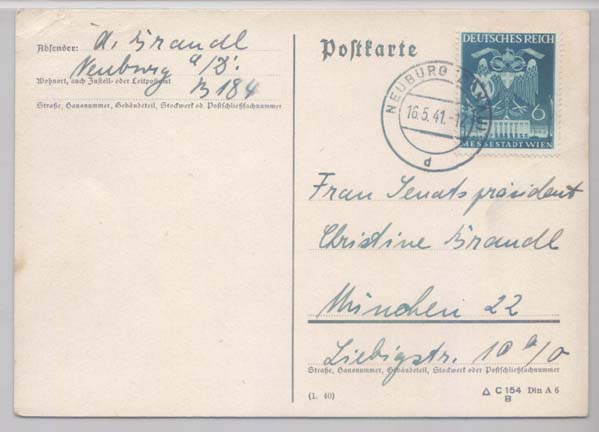 Absender: A. Brandl
Neuburg a/D.
Wohnort, auch Zustell- oder Leitpostamt
B 184
Straße, Hausnummer, Gebäudeteil, Stockwerk od. Postschließfachnummer
Postkarte
DEUTSCHES REICH
6
MESSESTADT WIEN
NEUBURG (DONAU)
16.5.41.-17
d
Frau Senatspräsident
Christine Brandl
München 22
Liebigstr. 10 a/0
Straße, Hausnummer, Gebäudeteil, Stockwerk oder Postschließfachnummer
(1. 40)
△ C 154 Din A 6
B